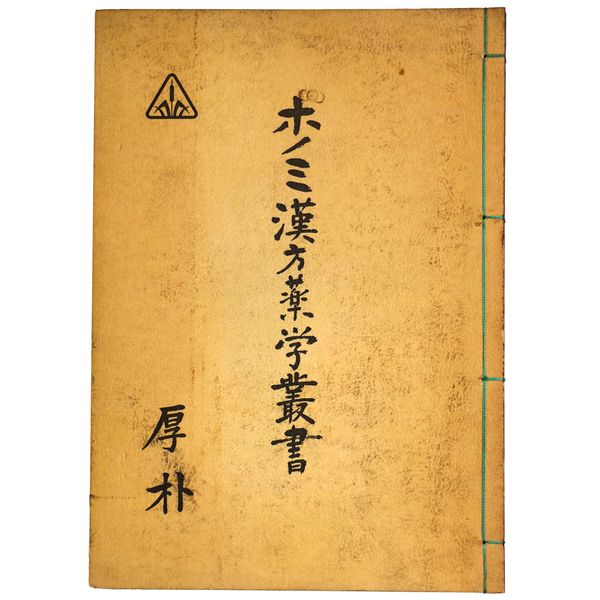 ホノミ漢方薬学叢書
厚朴